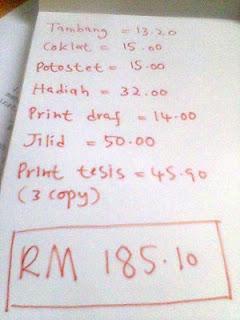 Tambang = 13.20
Coklat = 15.00
Potostet = 15.00
Hadiah = 32.00
Print draf = 14.00
Jilid = 50.00
Print tesis = 45.90
(3 copy)
RM 185.10